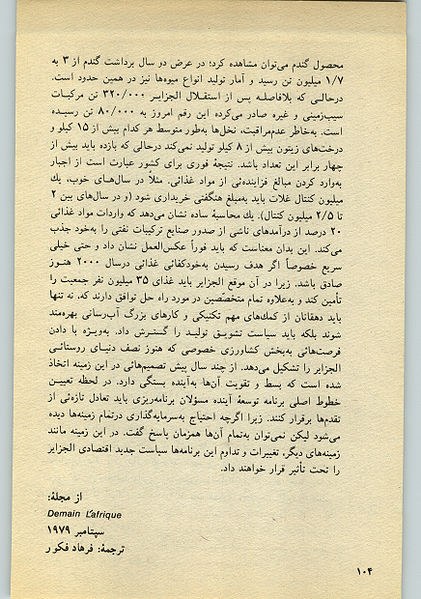 محصول گندم می‌توان مشاهده کرد؛ در عرض دو سال برداشت گندم از ۳ به
۱/۷ میلیون تن رسید و آمار تولید انواع میوه‌ها نیز در همین حدود است.
درحالی که بلافاصله پس از استقلال الجزایر ۳۲۰/۰۰۰ تن مرکبات
سیب‌زمینی و غیره صادر می‌کرده این رقم امروز به ۸۰/۰۰۰ تن رسیده
است. به‌خاطر عدم‌مراقبت، نخل‌ها به‌طور متوسط هر کدام بیش از ۱۵ کیلو و
درخت‌های زیتون بیش از ۸ کیلو تولید نمی‌کند درحالی که بازده باید بیش از
چهار برابر این تعداد باشد. نتیجهٔ فوری برای کشور عبارت است از اجبار
به‌وارد کردن مبالغ فزاینده‌ئی از مواد غذائی. مثلاً در سال‌های خوب، یك
میلیون کنتال غلات باید به‌مبلغ هنگفتی خریداری شود (و در سال‌های بین ۲
تا ۲/۵ میلیون کنتال). یك محاسبهٔ ساده نشان می‌دهد که واردات مواد غذائی
۲۰ درصد از درآمدهای ناشی از صدور صنایع ترکیبات نفتی را به‌خود جذب
می‌کند. این بدان معناست که باید فوراً عکس‌العمل نشان داد و حتی خیلی
سریع خصوصاً اگر هدف رسیدن به‌خودکفائی غذائی درسال ۲۰۰۰ هنوز
صادق باشد. زیرا در آن موقع الجزایر باید غذای ۳۵ میلیون نفر جمعیت را
تأمین کند و به‌علاوه تمام متخصّصین در مورد راه حل توافق دارند که، نه تنها
باید دهقانان از کمك‌های مهم تکنیکی و کارهای بزرگ آب‌رسانی بهره‌مند
شوند بلکه باید سیاست تشویق تولید را گسترش داد. به‌ویژه با دادن
فرصت‌هائی به‌بخش کشاورزی خصوصی که هنوز نصف دنیای روستائی
الجزایر را تشکیل می‌دهد. از چند سال پیش تصمیم‌هائی در این زمینه اتخاذ
شده است که بسط و تقویت آن‌ها به‌آینده بستگی دارد. در لحظه تعیین
خطوط اصلی برنامه توسعهٔ آینده مسؤلان برنامه‌ریزی باید تعادل تازه‌ئی از
تقدم‌ها برقرار کنند. زیرا اگرچه احتیاج به‌سرمایه‌گذاری درتمام زمینه‌ها دیده
می‌شود لیکن نمی‌توان به‌تمام آن‌ها همزمان پاسخ گفت. در این زمینه مانند
زمینه‌های دیگر، تغییرات و تداوم این برنامه‌ها سیاست جدید اقتصادی الجزایر
را تحت تأثیر قرار خواهند داد.
از مجلهٔ:
Demain L'afrique
سپتامبر ۱۹۷۹
ترجمهٔ: فرهاد فکور
۱۰۴